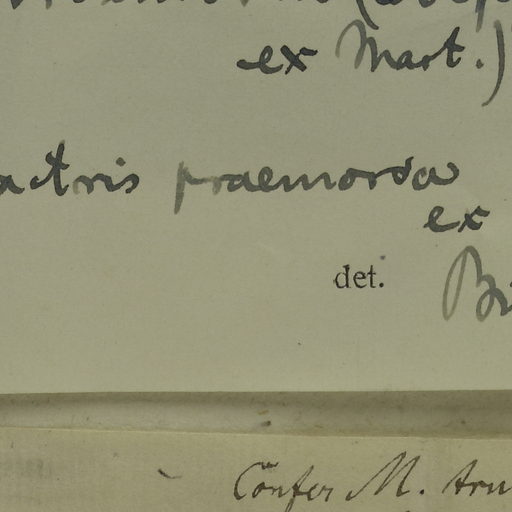 ex Mart.)
actris praemorsa
ex
det. Bu
Confer M. tru